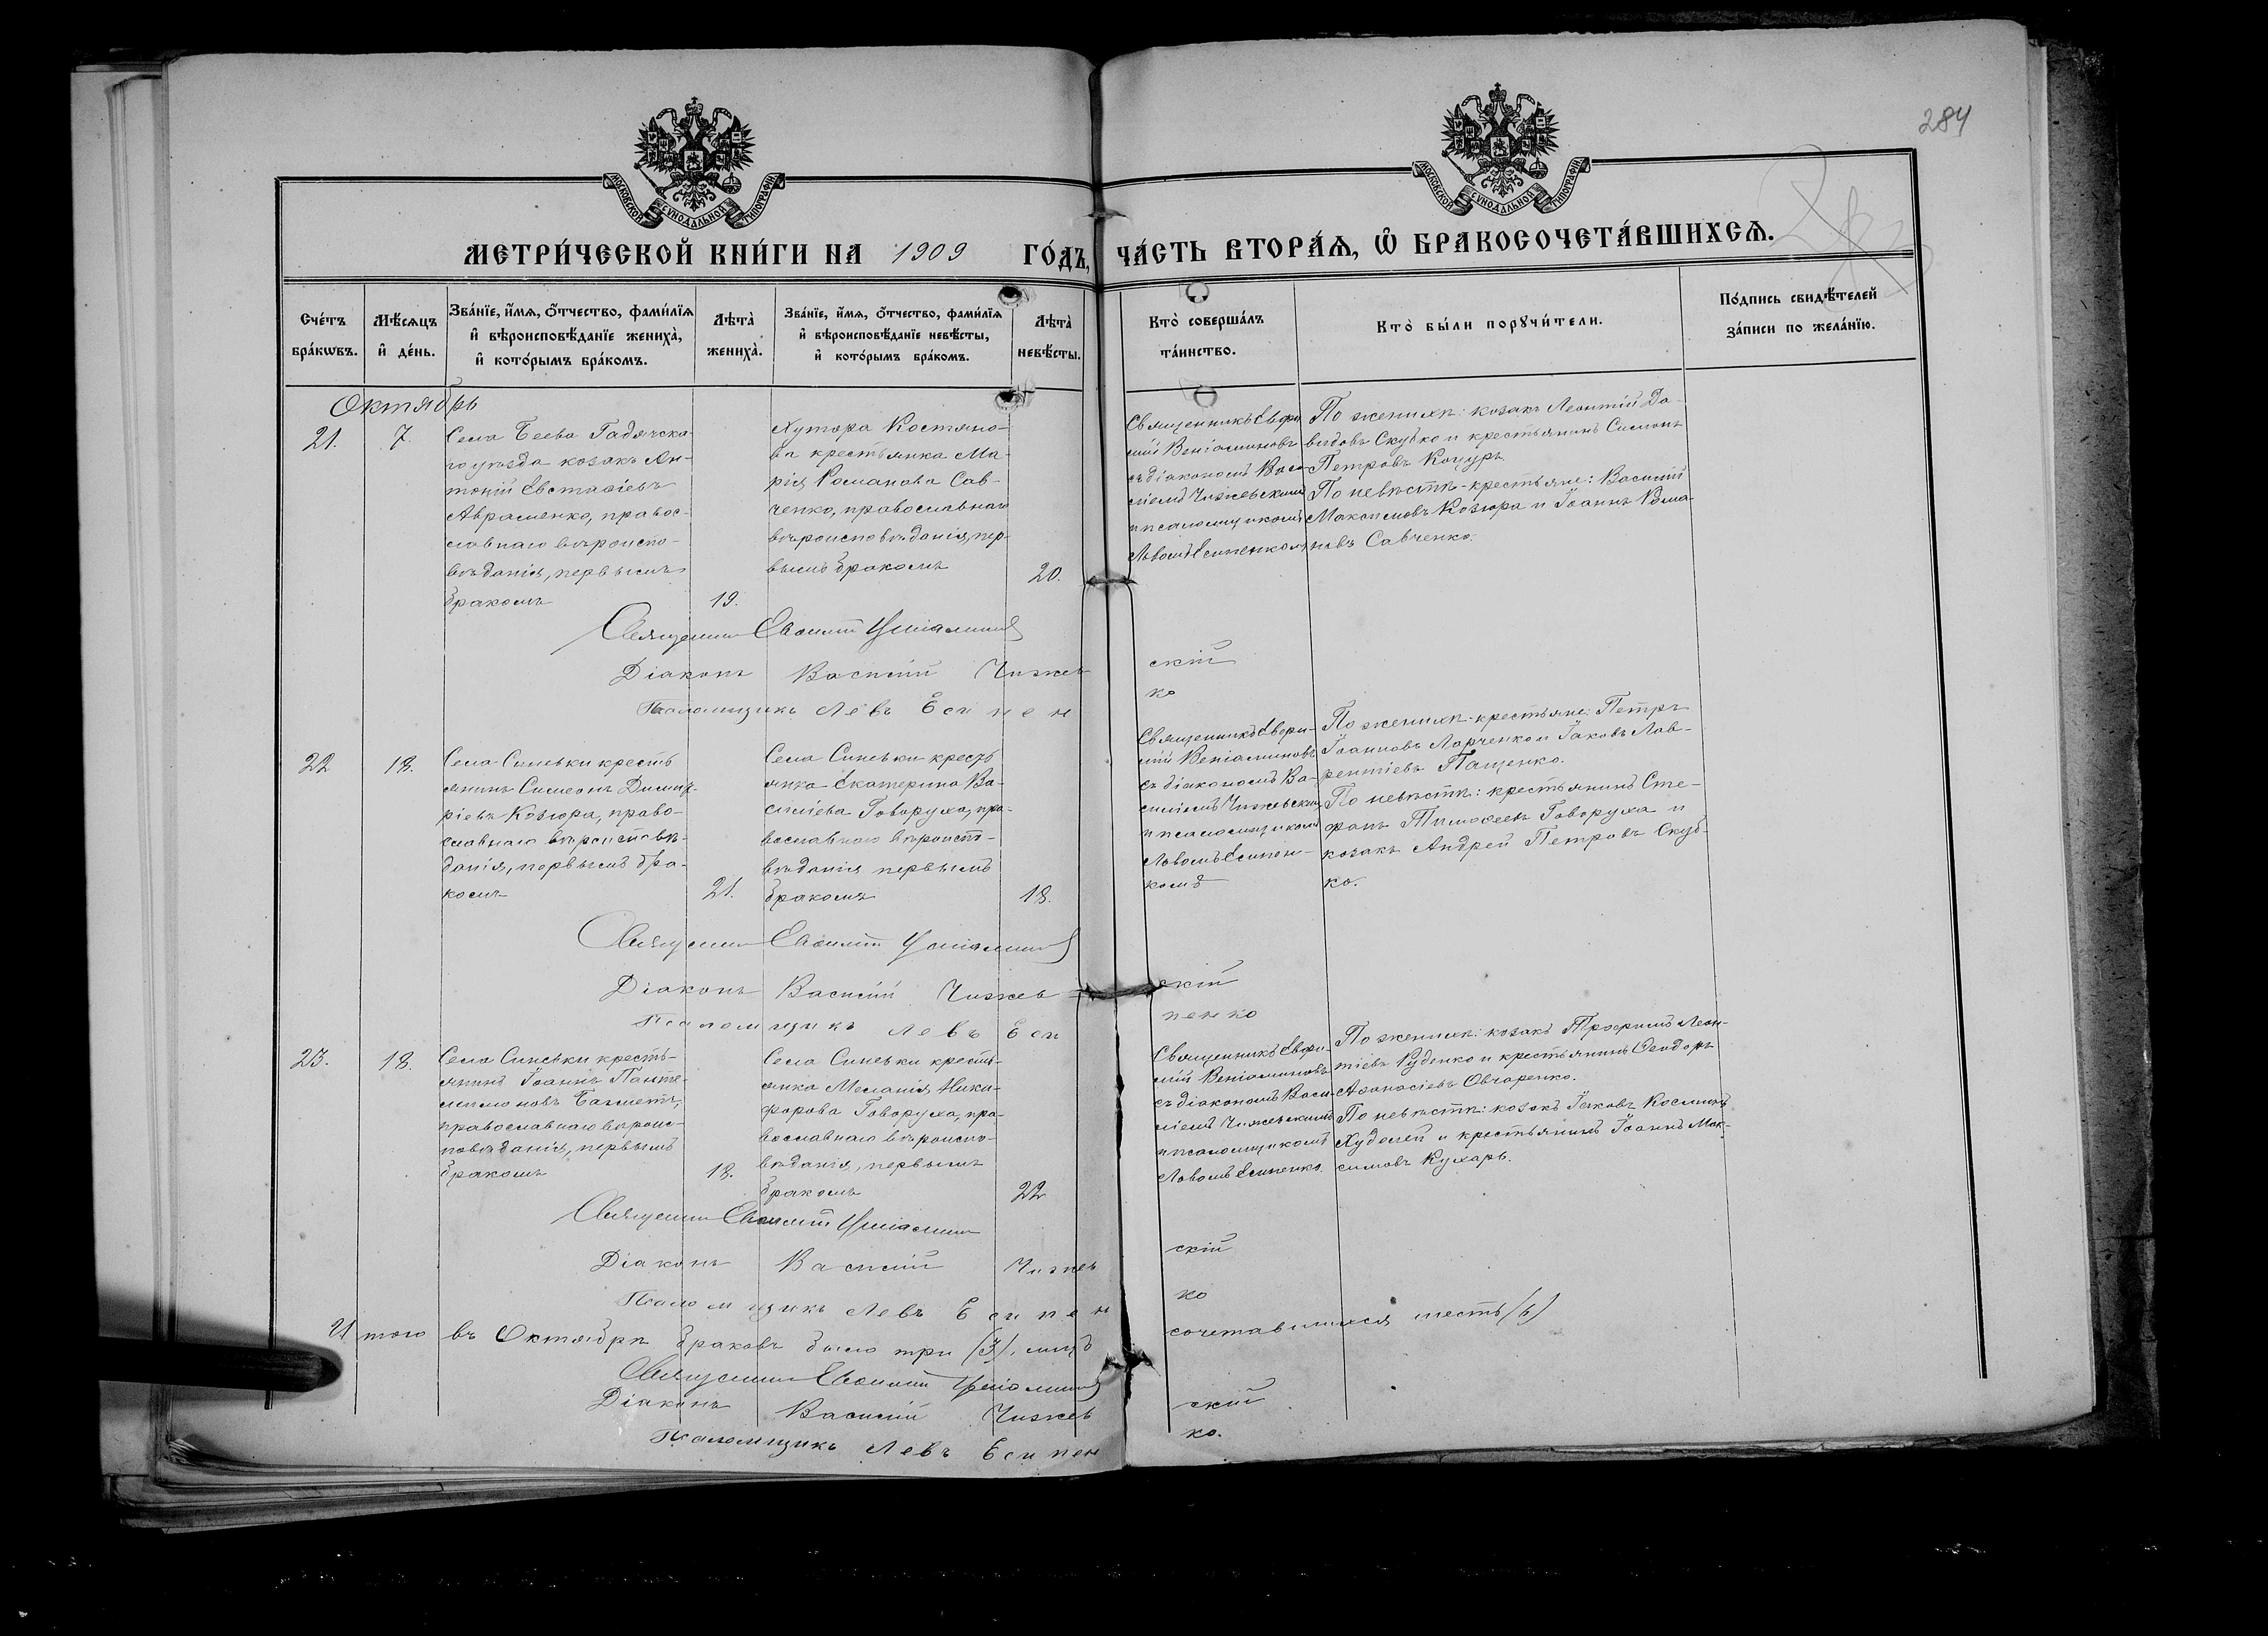 284
МОСКОВСКОЙ СѴНОДАЛЬНОЙ ТИПОГРАФІИ
МОСКОВСКОЙ СѴНОДАЛЬНОЙ ТИПОГРАФІИ
МЕТРИ́ЧЕСКОЙ КНИ́ГИ НА 1909 ГО́ДЪ, ЧА́СТЬ ВТОРА́Я, Ѿ БРАКОСОЧЕТА́ВШИХСЯ.
Сче́тъ
бра́кѡвъ.
Мѣ́сяцъ
и҆ де́нь.
Зва́нїе, и҆́мя, ѻ҆́тчество, фами́лїя
и҆ вѣроисповѣ́данїе жениха̀,
и҆ кото́рымъ бра́комъ.
Лѣта̀
жениха̀.
Зва́нїе, и҆́мя, ѻ҆́тчество, фами́лїя
и҆ вѣроисповѣ́данїе невѣ́сты,
и҆ кото́рымъ бра́комъ.
Лѣта̀
невѣ́сты.
Кто̀ соверша́лъ
та́инство.
Кто̀ бы́ли порꙋчи́тели.
По́дпись свидѣ́телей
за́писи по жела́нїю.
Октябрь
21.
7.
Села Беева Гадячска-
го уѣзда козакъ Ан-
тоній Евстафіевъ
Авраменко, правос-
лавнаго вѣроиспо-
вѣданія, первымъ
бракомъ
19.
Хутора Костяно-
ва крестьянка Ма-
рія Романова Сав-
ченко, православнаго
вѣроисповѣданія, пер-
вымъ бракомъ
20.
Священникъ Евфи-
мій Веніаминовъ
съ діакономъ Васи-
ліемъ Чижевскимъ
и псаломщикомъ
Львомъ Есипенком
По женихѣ: козакъ Леонтій Да-
видовъ Скубко и крестьянинъ Симонъ
Петровъ Коцуръ.
По невѣстѣ - крестьяне: Василій
Максимовъ Козюра и Іоаннъ Рома-
новъ Савченко.
Священникъ Евфимій Веніаминовъ
Діаконъ Василій Чижевскій
Псаломщикъ Левъ Есипенко
22
18.
Села Синевки кресть
янинъ Симеонъ Димит-
ріевъ Козюра, право-
славнаго вѣроисповѣ-
данія, первымъ бра-
комъ
21.
Села Синевки кресть
янка Екатерина Ва-
силіева Говоруха, пра-
вославнаго вѣроиспо-
вѣданія первымъ
бракомъ
18.
Священникъ Евфи-
мій Веніаминовъ
съ діакономъ Ва-
силіемъ Чижевским
и псаломщикомъ
Львомъ Есипен-
комъ
По женихѣ - крестьяне: Петръ
Іоанновъ Ларченко и Іаковъ Лав-
рентіевъ Пащенко.
По невѣстѣ: крестьянинъ Сте-
фанъ Тимофеевъ Говоруха и
козакъ Андрей Петровъ Скуб-
ко.
Священникъ Евфимій Веніаминовъ
Діаконъ Василій Чижевскій
Псаломщикъ Левъ Есипенко
23.
18.
Села Синевки кресть-
янинъ Іоаннъ Панте-
леимоновъ Багметъ,
православнаго вѣроис-
повѣданія, первымъ
бракомъ
18.
Села Синевки кресть-
янка Меланія Ники-
форова Говоруха, пра-
вославнаго вѣроиспо-
вѣданія, первымъ
бракомъ
22
Священникъ Евфи-
мій Веніаминовъ
съ діакономъ Васи-
ліемъ Чижевскимъ
и псаломщикомъ
Львомъ Есипенко.
По женихѣ: козакъ Трофимъ Леон-
тіевъ Руденко и крестьянинъ Феодоръ
Афанасіевъ Овчаренко.
По невѣстѣ: козакъ Іаковъ Косминъ
Худолей и крестьянинъ Іоаннъ Мак-
симовъ Кухарь.
Священникъ Евфимій Веніаминовъ
Діаконъ Василій Чижевскій
Псаломщикъ Левъ Есипенко
Итого въ Октябрѣ браковъ было три (3), лицъ сочетавшихся шесть (6)
Священникъ Евфимій Веніаминовъ
Діаконъ Василій Чижевскій
Псаломщикъ Левъ Есипенко.